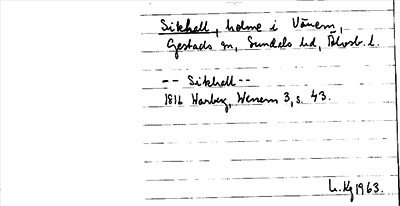 Sikhall, holme i Vänern,
Gestads sn, Sundals hd, Älvsb. l.
-- Sikhall --
1816 Warberg, Wenern 3, s. 43.
1963.